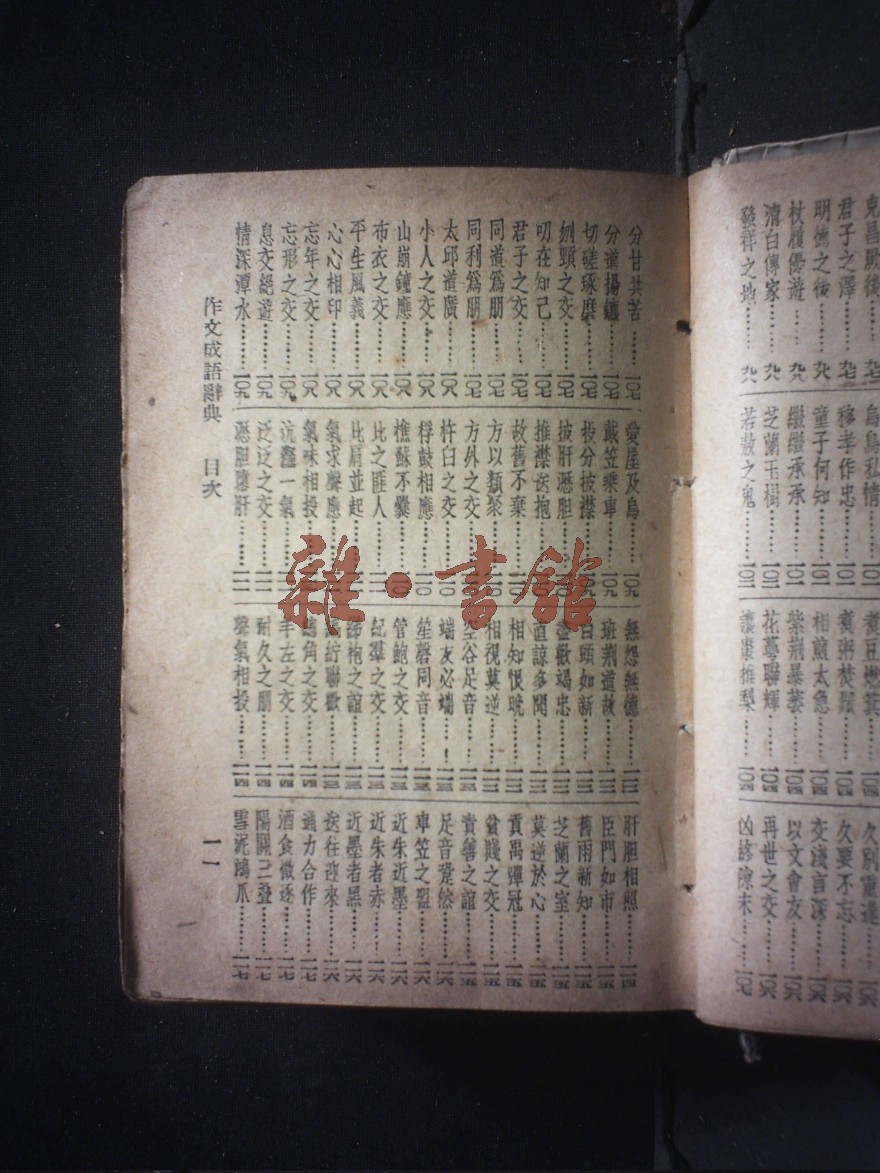 克昌厥後……九七
君子之澤……九七
明德之後……九八
杖履優遊……九八
清白傳家……九八
發祥之地……九八
烏鳥私情……一〇一
移孝作忠……一〇一
童子何知……一〇一
繼繼承承……一〇一
芝蘭玉樹……一〇一
若敖之鬼……一〇一
煮豆燃萁……一〇四
煮粥焚鬚……一〇四
相煎太急……一〇四
紫荊暴萎……一〇四
花萼聯輝……一〇四
讓棗推梨……一〇四
久別重逢……一〇六
久要不忘……一〇六
交淺言深……一〇六
以文會友……一〇六
再世之交……一〇六
凶終隙末……一〇七
分甘共苦……一〇七
分道揚鑣……一〇七
切磋琢磨……一〇七
刎頸之交……一〇七
叨在知己……一〇七
君子之交……一〇七
同道爲朋……一〇七
同利爲朋……一〇七
太邱道廣……一〇八
小人之交……一〇八
山崩鐘應……一〇八
布衣之交……一〇八
平生風義……一〇八
心心相印……一〇八
忘年之交……一〇九
忘形之交……一〇九
息交絕遊……一〇九
情深潭水……一〇九
愛屋及烏……一〇九
戴笠乘車……一〇九
投分披襟……一〇九
披肝瀝胆……
推襟送抱……
故舊不棄……
方以類聚……
方外之交……
杵臼之交……一一〇
桴鼓相應……一一〇
樵蘇不爨……一一〇
比之匪人……一一一
比肩並起……
氣求聲應……
氣味相投……
沆瀣一氣……
泛泛之交……一一一
瀝胆隳肝……一一一
無怨無德……一一二
班荊道故……一一二
白頭如新……一一二
盡歡竭忠……一一二
直諒多聞……一一二
相知恨晚……一一二
相視莫逆……一一二
空谷足音……一一三
端友必端……一一三
笙磬同音……一一三
管鮑之交……一一三
紀羣之交……一一三
綈袍之誼……一一三
縞紵聯歡……一一三
總角之交……一一四
羊左之交……一一四
耐久之朋……一一四
聲氣相投……一一四
肝胆相照……一一四
臣門如市……一一五
舊雨新知……一一五
芝蘭之室……一一五
莫逆於心……一一五
貢禹彈冠……一一五
貧賤之交……一一五
責善之誼……一一五
足音跫然……一一六
車笠之盟……一一六
近朱近墨……一一六
近朱者赤……一一六
近墨者黑……一一六
送往迎來……一一六
通力合作……一一七
酒食徵逐……一一七
陽關三叠……一一七
雪泥鴻爪……一一七
作文成語辭典 目次
一一
雜·書館